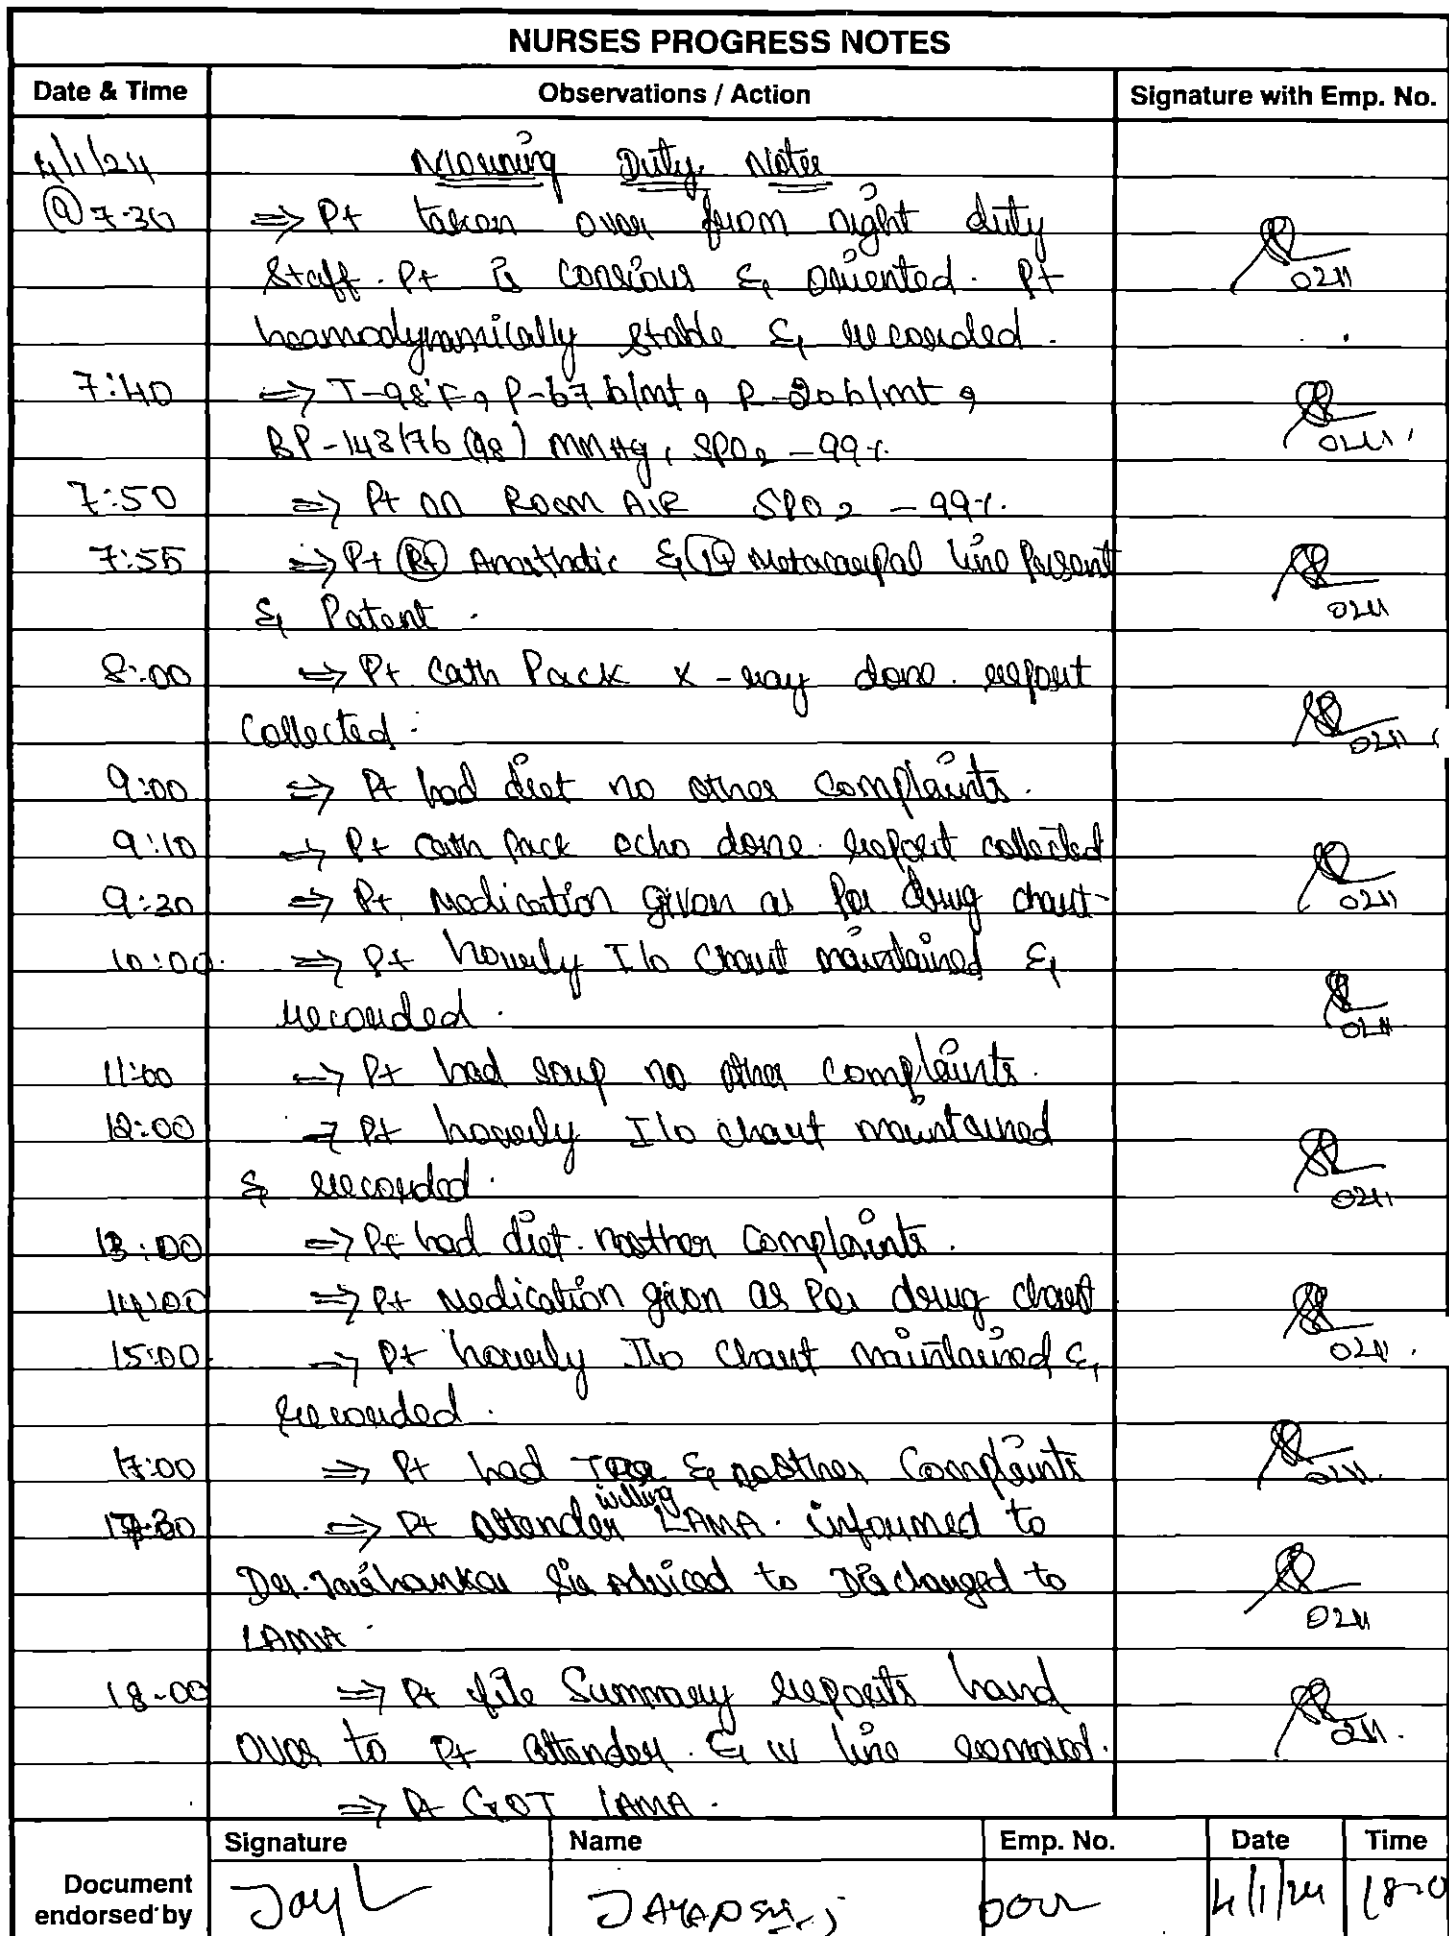 NURSES PROGRESS NOTES
Date & Time Observations / Action Signature with Emp. No.
4/1/24 Mourning Duty Notes
@ 7.30 ⇒ Pt taken over from night duty
Staff. Pt is Conscious & Oriented. Pt
0211
heamodynamically Stable & recorded.
7:40 ⇒ T-98°F, P-67 b/mt, R-20b/mt,
BP-143/76 (98) mmHg, SPO2 - 99%
0211
7:50 ⇒ Pt on Room AIR SPO2 - 99%.
7:55 ⇒ Pt (Rt) & Metacarpal line Present
& Patent.
0211
8:00 ⇒ Pt Cath Pack X-ray done. report
Collected.
0211
9:00 ⇒ Pt had diet no other Complaints.
9:10 ⇒ Pt Cath Pack echo done. report collected
9:30 ⇒ Pt Medication given as Per drug chart
0211
10:00 ⇒ Pt hourly I/o Chart maintained &
recorded.
0211
11:00 ⇒ Pt had soup no other Complaints.
12:00 ⇒ Pt hourly I/o chart maintained
& recorded.
0211
13:00 ⇒ Pt had diet. no other Complaints.
14:00 ⇒ Pt Medication given as Per drug chart
15:00 ⇒ Pt hourly I/o Chart maintained &
0211
recorded.
17:00 ⇒ Pt had & no other Complaints
0211
17:30 ⇒ Pt attender willing LAMA. informed to
Dr. Sir adviced to Discharged to
LAMA.
0211
18-00 ⇒ Pt file Summary reports hand
over to Pt attender. & IV line removed.
211.
⇒ Pt GOT LAMA.
Signature Name Emp. No. Date Time
Document endorsed by 4/1/24